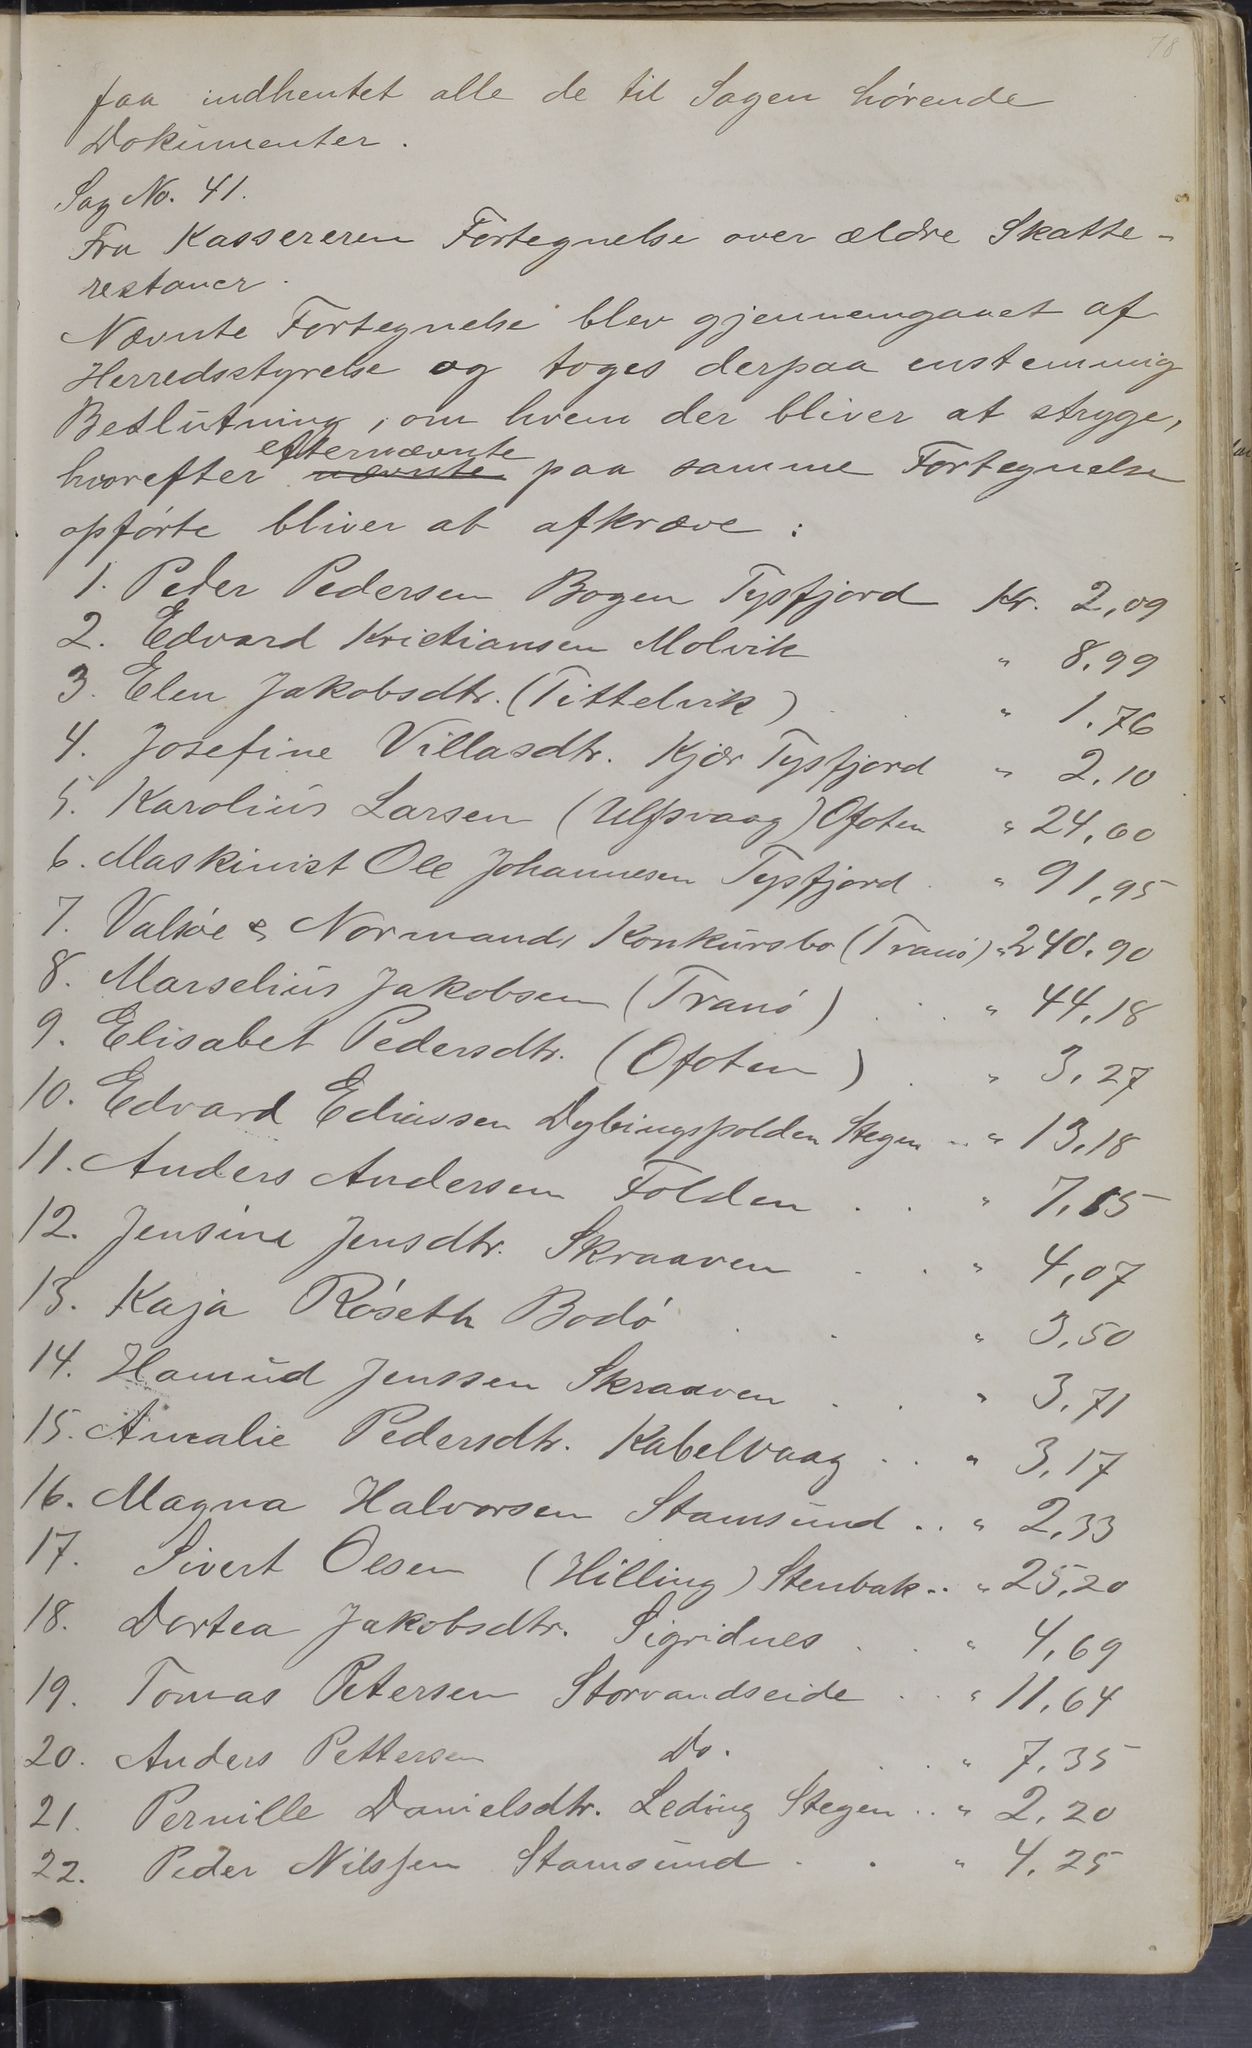 78
faa indhentet alle de til Sagen hørende
Dokumenter.
Sag No. 41.
Fra Kassereren Fortegnelse over ældre Skatte-
restancer.
Nævnte Fortegnelse blev gjennemgaaet af
Herredsstyrelse og toges derpaa enstemmig
Beslutning, om hvem der bliver at stryge,
efternævnte
hvorefter nævnte paa samme Fortegnelse
opførte bliver at afkræve:
1. Peder Pedersen Bogen Tysfjord Kr. 2,09
2. Edvard Kristiansen Molvik " 8,99
3. Elen Jakobsdtr. (Tittelvik) . . " 1.76
4. Josefine Villasdtr. Kjær Tysfjord " 2.10
5. Karolius Larsen (Ulfsvaag) Ofoten " 24,00
6. Maskinist Ole Johannesen Tysfjord. " 91,95
7. Valsøe & Normands Konkursbo (Tranø) " 240.90
8. Marselius Jakobsen (Tranø) . . . " 44,18
9. Elisabet Pedersdtr. (Ofoten) . " 3,27
10. Edvard Eliassen Dybingspolden Stegen .. " 13,18
11. Anders Andersen Folden . . " 7,15
12. Jensine Jensdtr. Skraaven . . " 4,07
13. Kaja Røseth Bodø . . " 3,50
14. Hamud Jenssen Skraaven . . " 3,71
15. Amalie Pedersdtr. Kabelvaag . . " 3,17
16. Magna Halvorsen Stamsund .. " 2,33
17. Sivert Olsen (Hilling) Stenbak .. " 25,20
18. Dortea Jakobsdtr. Sigridnes . . " 4,69
19. Tomas Petersen Storvandseide . . " 11,64
20. Anders Pettersen Do. . . " 7,35
21. Pernille Danielsdtr. Leding Stegen .. " 2,20
22. Peder Nilssen Stamsund . . " 4,25